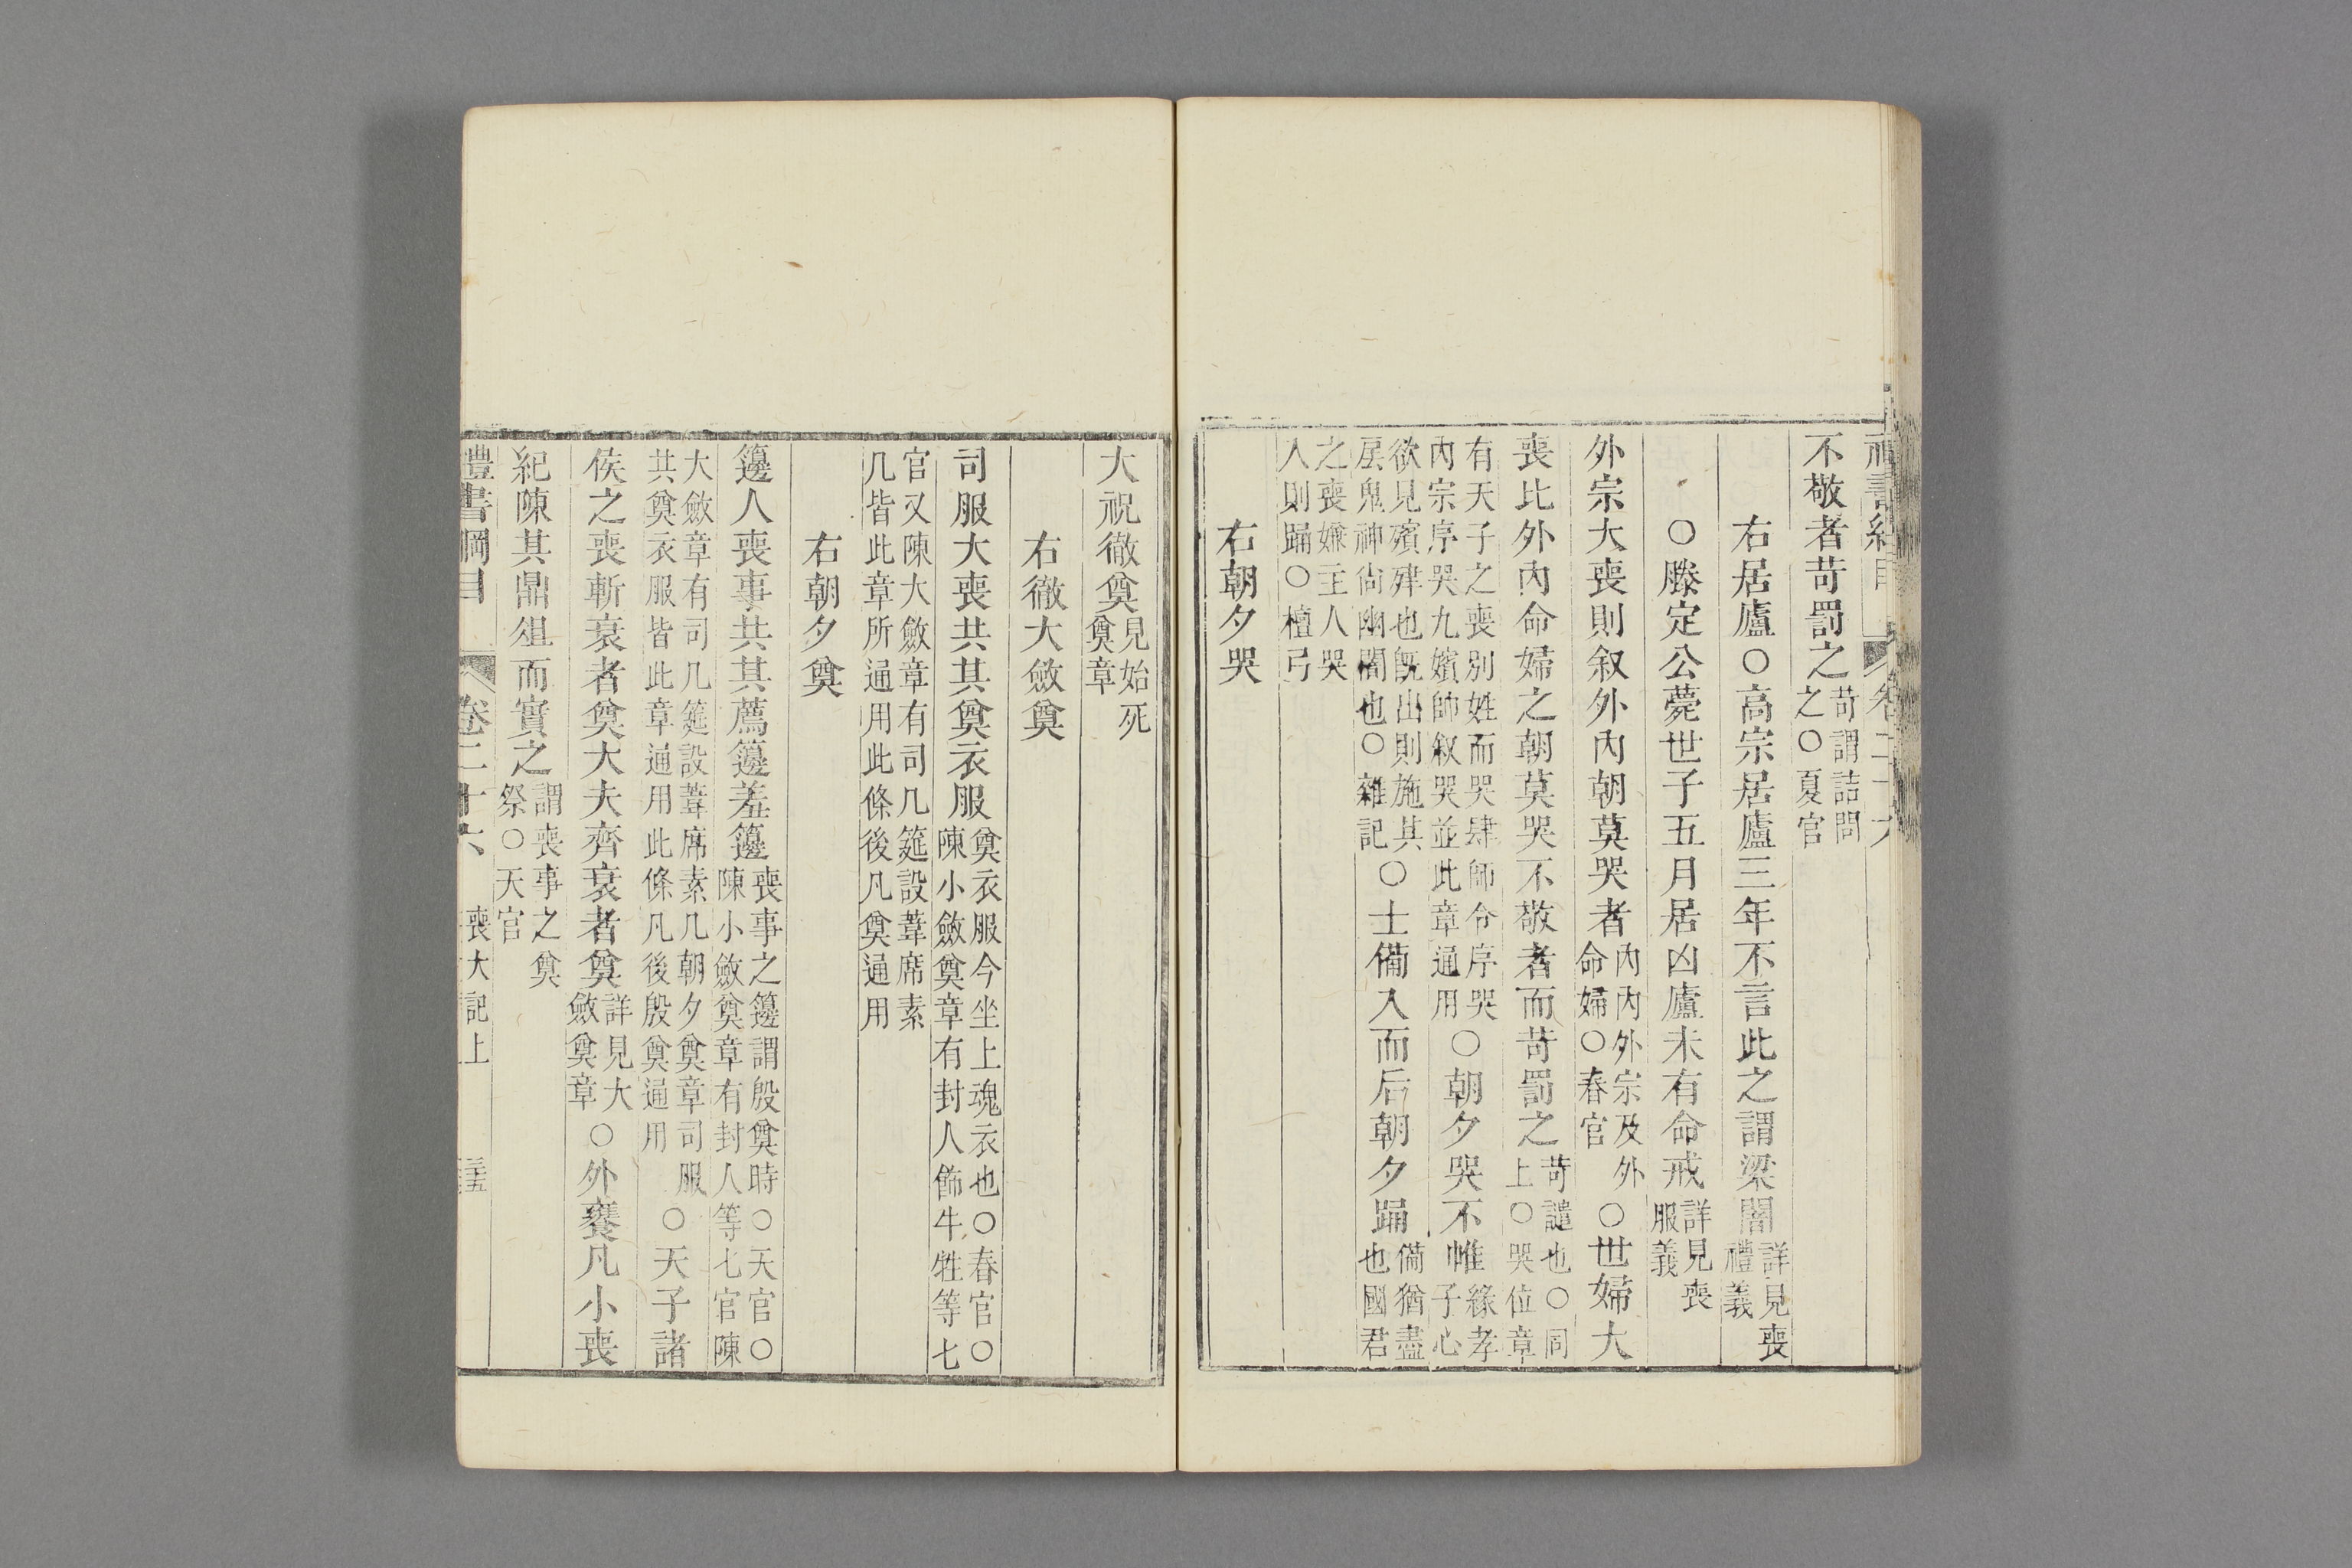 不敬者苛罰之苛謂詰問之○夏官
右居廬○高宗居廬三年不言此之謂梁闇詳見喪禮義
○滕定公薨世子五月居凶廬未有命戒詳見喪服義
外宗大喪則叙外內朝莫哭者內內外宗及外命婦○春官○世婦大
喪比外內命婦之朝莫哭不敬者而苛罰之苛譴也○同上○哭位章
有天子之喪別姓而哭肆師令序哭內宗序哭九嬪帥叙哭並此章通用○朝夕哭不帷緣孝子心
欲見殯肂也旣出則施其扆鬼神尙幽闇也○雜記○士備入而后朝夕踊備猶盡也國君
之喪嫌主人哭入則踊○檀弓
右朝夕哭
大祝徹奠見始死奠章
右徹大斂奠
司服大喪共其奠衣服奠衣服今坐上魂衣也○春官○陳小斂奠章有封人飾牛牲等七
官又陳大斂章有司几筵設葦席素几皆此章所通用此條後凡奠通用
右朝夕奠
籩人喪事共其薦籩羞籩喪事之籩謂殷奠時○天官○陳小斂奠章有封人等七官陳
大斂章有司几筵設葦席素几朝夕奠章司服共奠衣服皆此章通用此條凡後殷奠通用○天子諸
侯之喪斬衰者奠大夫齊衰者奠詳見大斂奠章○外饔凡小喪
紀陳其鼎俎而實之謂喪事之奠祭○天官
禮書綱目 卷二十六 喪大記上 三五